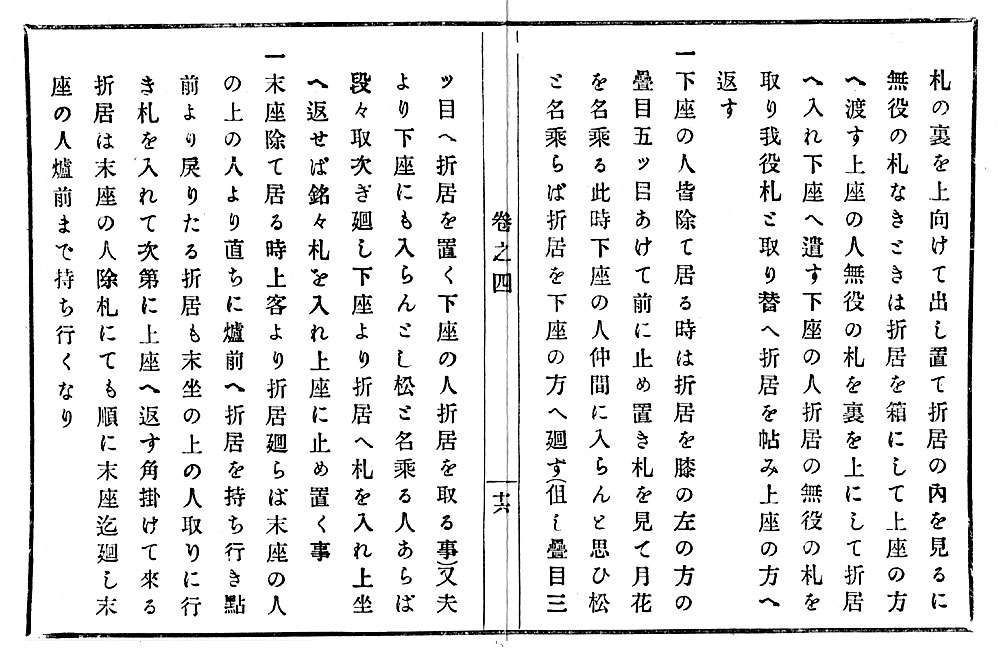 札の裏を上向けて出し置て折居の內を見るに
無役の札なきときは折居を箱にして上座の方
へ渡す上座の人無役の札を裏を上にして折居
へ入れ下座へ遣す下座の人折居の無役の札を
取り我役札と取り替へ折居を帖み上座の方へ
返す
一下座の人皆除て居る時は折居を膝の左の方の
疊目五ッ目あけて前に止め置き札を見て月花
を名乘る此時下座の人仲間に入らんと思ひ松
と名乘らば折居を下座の方へ廻す(但し疊目三
卷之四
十六
ッ目へ折居を置く下座の人折居を取る事)又夫
より下座にも入らんとし松と名乘る人あらば
段々取次ぎ廻し下座より折居へ札を入れ上坐
へ返せば銘々札を入れ上座に止め置く事
一末座除て居る時上客より折居廻らば末座の人
の上の人より直ちに爐前へ折居を持ち行き點
前より戾りたる折居も末坐の上の人取りに行
き札を入れて次第に上座へ返す角掛けて來る
折居は末座の人除札にても順に末座迄廻し末
座の人爐前まで持ち行くなり